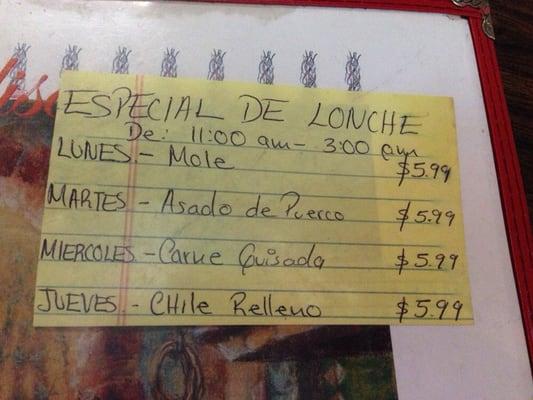 ESPECIAL DE LONCHE
De: 11:00 am - 3:00 pm
LUNES.- Mole $5.99
MARTES - Asado de Puerco $5.99
MIERCOLES - Carne Guisada $5.99
JUEVES.- CHile Relleno $5.99